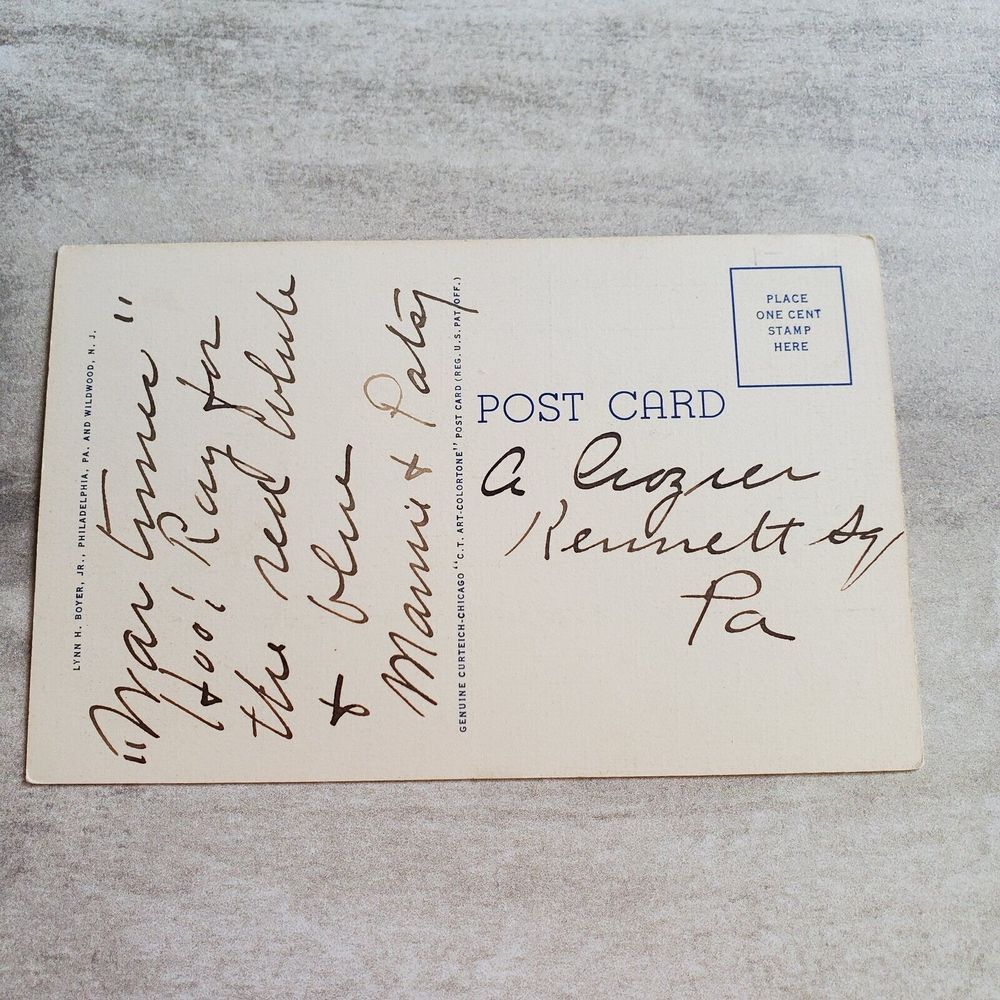 LYNN H. BOYER, JR., PHILADELPHIA, PA. AND WILDWOOD, N. J.
"War time"
Hoo! Ray for
the red white
& blue
Mamie & Patsy
GENUINE CURTEICH-CHICAGO "C.T. ART-COLORTONE" POST CARD (REG. U.S. PAT. OFF.)
PLACE
ONE CENT
STAMP
HERE
POST CARD
A Crozier
Kennett Sq
Pa